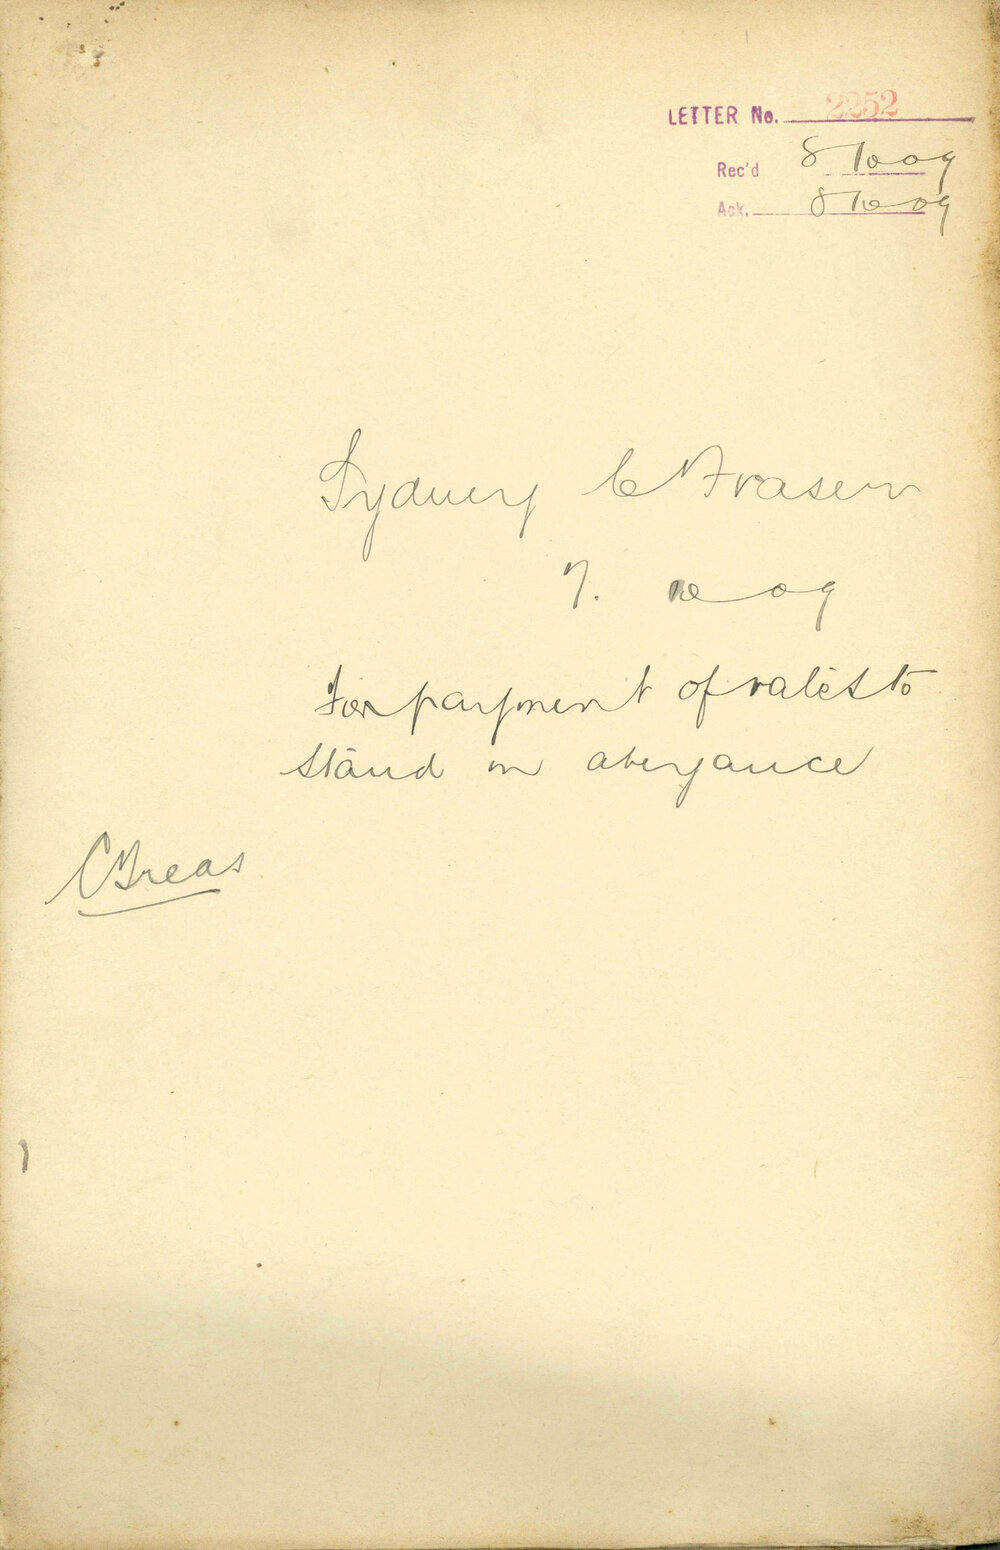 LETTER No. 2252
Rec'd 8 10 09
Ack. 8 10 09
Sydney C Fraser
7. 10 09
For payment of rates to
stand in abeyance